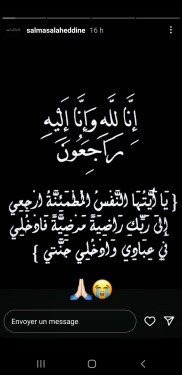 salmasalaheddine 16 h
إِنَّا لِلَّهِ وَإِنَّا إِلَيْهِ
رَاجِعُونَ
{ يَا أَيَّتُهَا النَّفْسُ الْمُطْمَئِنَّةُ ارْجِعِي
إِلَى رَبِّكِ رَاضِيَةً مَرْضِيَّةً فَادْخُلِي
فِي عِبَادِي وَادْخُلِي جَنَّتِي }
🙏🏻😭
Envoyer un message